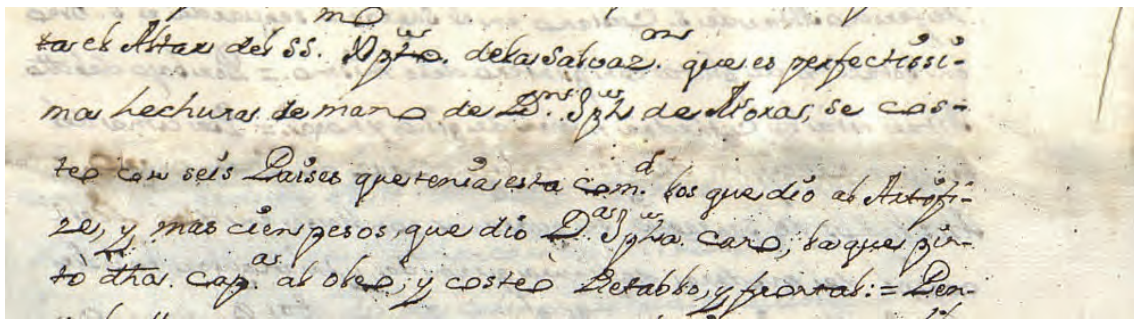 tar el Altar del SS.mo Xpto. de la Salvaz.on que es perfectissi-
ma hechura de mano de D.n Jph de Mora, se cos-
teo con seis Paises que tenia esta Com.d los que dio al Artifi-
ze, y mas cien pesos, que dio D.a Jpha. Caro; la que pin-
tò dha. Cap.a al oleo, y costeò Retablo, y frontal: = Pen-